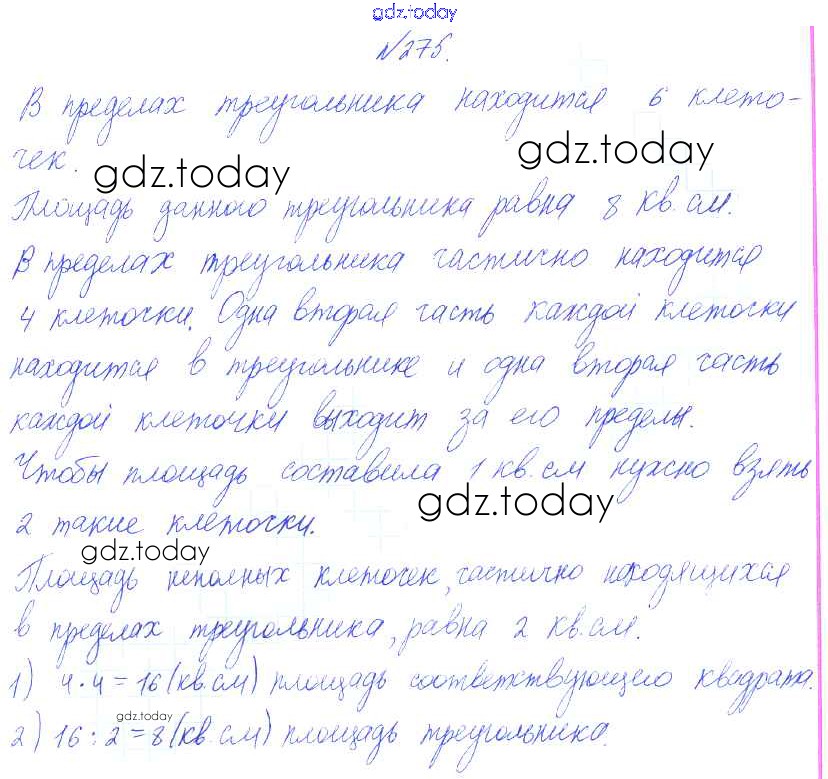 gdz.today
№275.
В пределах треугольника находится 6 клето-
чек.
gdz.today
gdz.today
Площадь данного треугольника равна 8 кв.см.
В пределах треугольника частично находится
4 клеточки. Одна вторая часть каждой клеточки
находится в треугольнике и одна вторая часть
каждой клеточки выходит за его пределы.
Чтобы площадь составила 1 кв.см нужно взять
gdz.today
2 такие клеточки.
gdz.today
Площадь неполных клеточек, частично находящихся
в пределах треугольника, равна 2 кв.см.
1) 4·4=16 (кв.см) площадь соответствующего квадрата.
gdz.today
2) 16:2=8 (кв.см) площадь треугольника.